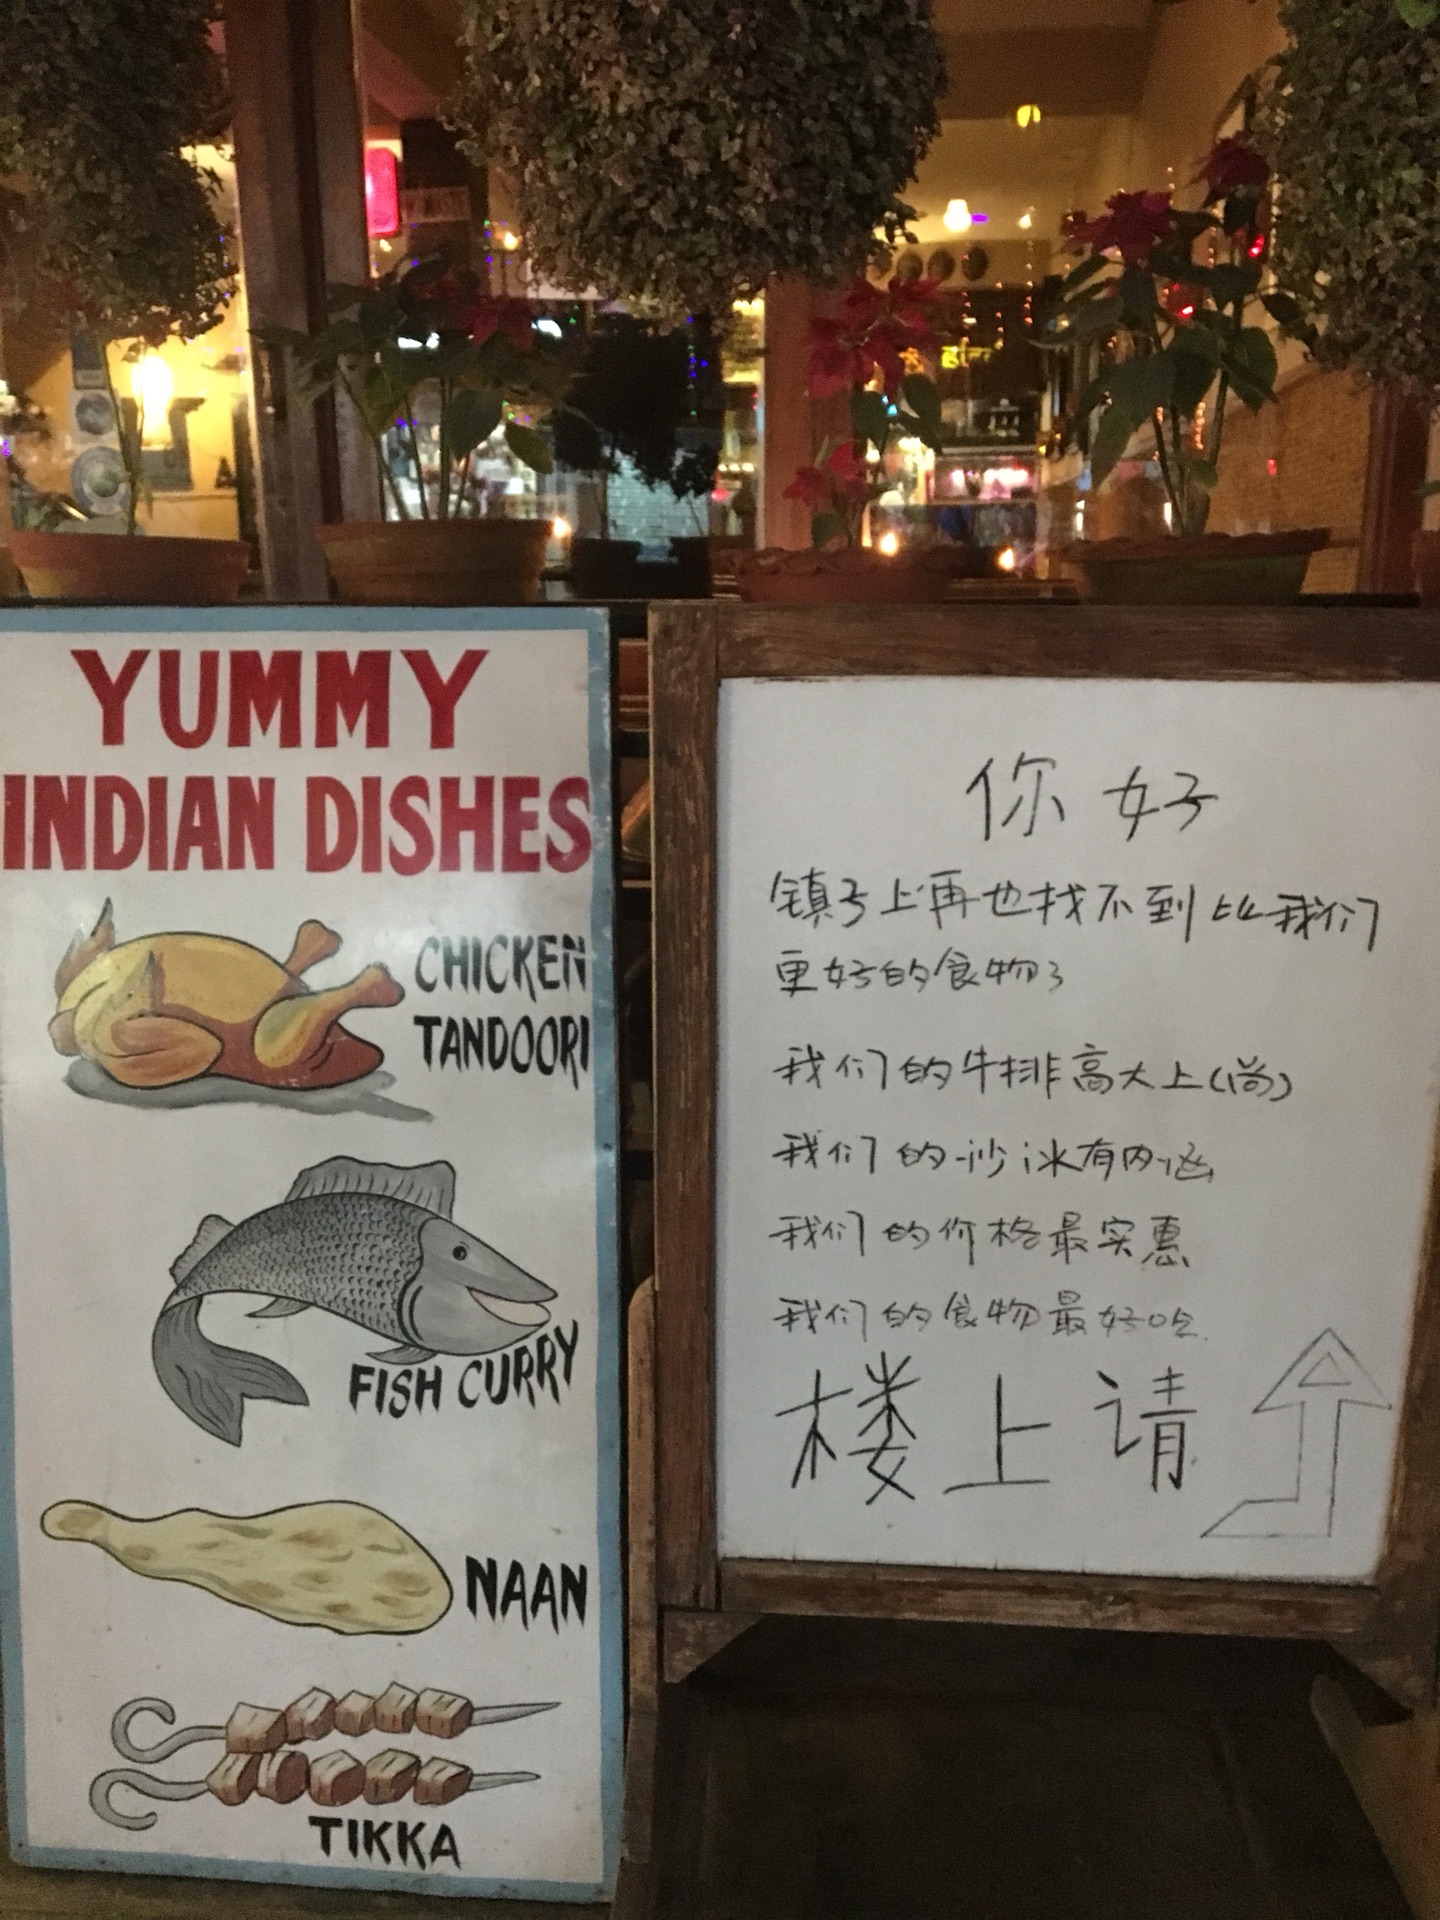 YUMMY
INDIAN DISHES
CHICKEN
TANDOORI
FISH CURRY
NAAN
TIKKA
你好
镇子上再也找不到比我们
更好的食物了
我们的牛排高大上(尚)
我们的沙冰有内涵
我们的价格最实惠
我们的食物最好吃
楼上请